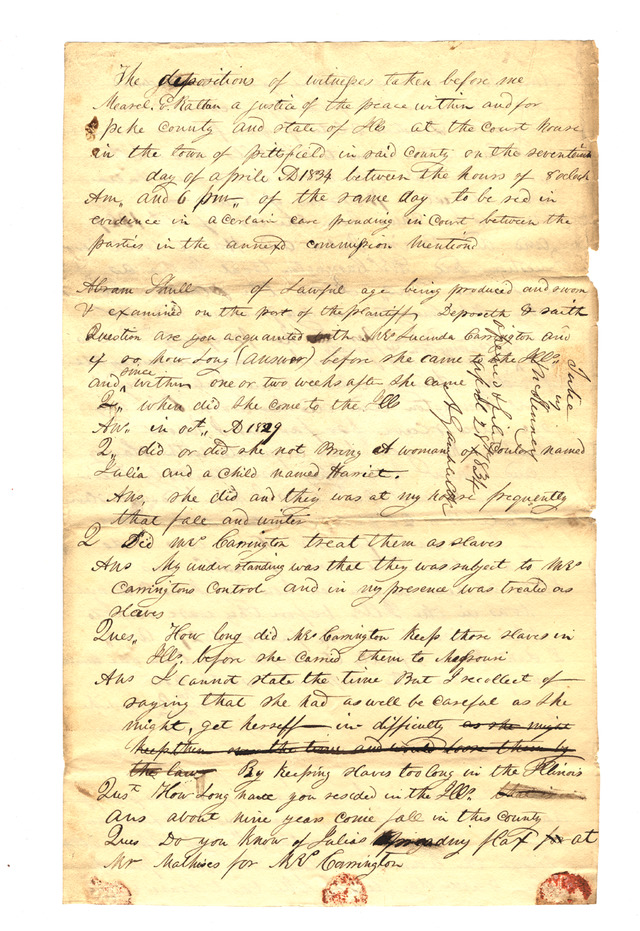 The depositions of witnesses taken before me
a justice of the peace within and for
pike County and state of Ills at the Court house
in the town of pittsfield in said County on the seventeenth
day of aprile AD 1834 between the hours of 8 oclock
Am,, and 6 pm,, of the same day to be red in
evidence in a certain case pending in Court between the
parties in the annexd commission mentiond
Abram Shull of Lawful age being produced and sworn
& examined on the part of the plaintiff Deposeth & saith
Question are you acquanted with Mrs Lucinda Carrington and
if so how Long (Answer) before she came to the Ills
and since within one or two weeks after she came
Q,, when did she come to the Ills
An,, in oct,, AD 1829
Q,, did or did she not Bring A woman of Coulor named
Julia and a child named Harriet.
Ans, she did and they was at my house frequently
that fall and winter
Q Did Mrs Carrington treat them as slaves
Ans My understanding was that they was subject to Mrs
Carringtons Control and in my presence was treated as
slaves
Ques,, How long did Mrs Carrington Keep those slaves in
Ills, before she carried them to Missouri
Ans I cannot state the time But I recollect of
saying that she had as well be careful as she
might, get herself in difficulty as she might
keep them over the time and would loose them by
the laws By Keeping slaves too long in the Illinois
Qust How Long have you resided in the Ills.
Ans about nine years come fall in this County
Ques Do you know of Julias spreading flax at
Mr Mathises for Mrs Carrington
Julia
vs
McKinney
opened & filed
april 28th 1834